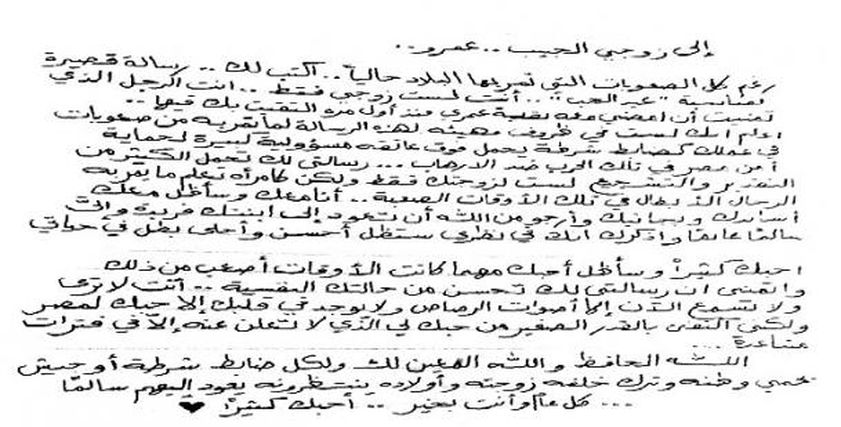 إلى زوجي الحبيب .. عمرو..
رغم كل الصعوبات التي تمر بها البلاد حالياً .. اكتب لك .. رسالة قصيرة
لمناسبة "عيد الحب" .. أنت لست زوجي فقط .. انت الرجل الذي
تمنيت أن امضي معه بقية عمري منذ أول مره التقيت بك فيها ..
اعلم انك لست في ظروف مهيئه لهذه الرسالة لما تمر به من صعوبات
في عملك كضابط شرطة يحمل فوق عاتقه مسؤولية كبيرة لحماية
أمن مصر في تلك الحرب ضد الارهاب ... رسالتي لك تحمل الكثير من
التقدير والتشجيع ليست لزوجتك فقط ولكن كامرأه تعلم ما يمر به
الرجال الأبطال في تلك الأوقات الصعبة .. أنا معك وسأظل معك
أساندك وبجانبك وأرجو من الله أن تعود إلى ابنتك فريدة وإليّ
سالمًا غانمًا واذكرك انك في نظري ستظل أحسن وأحلى بطل في حياتي
احبك كثيراً وسأظل أحبك مهما كانت الأوقات أصعب من ذلك
واتمنى ان رسالتي لك تحسن من حالتك النفسية .. أنت لا ترى
ولا تسمع الآن إلا أصوات الرصاص ولا يوجد في قلبك إلا حبك لمصر
ولكني اكتفى بالقدر الصغير من حبك لي الذي لا تعلن عنه إلا في فترات
متباعدة ...
الله الحافظ والله المعين لك ولكل ضابط شرطة أو جيش
يحمي وطنه وترك خلفه زوجته وأولاده ينتظرونه يعود إليهم سالمًا
... كل عام وأنت بخير .. أحبك كثيراً ♥